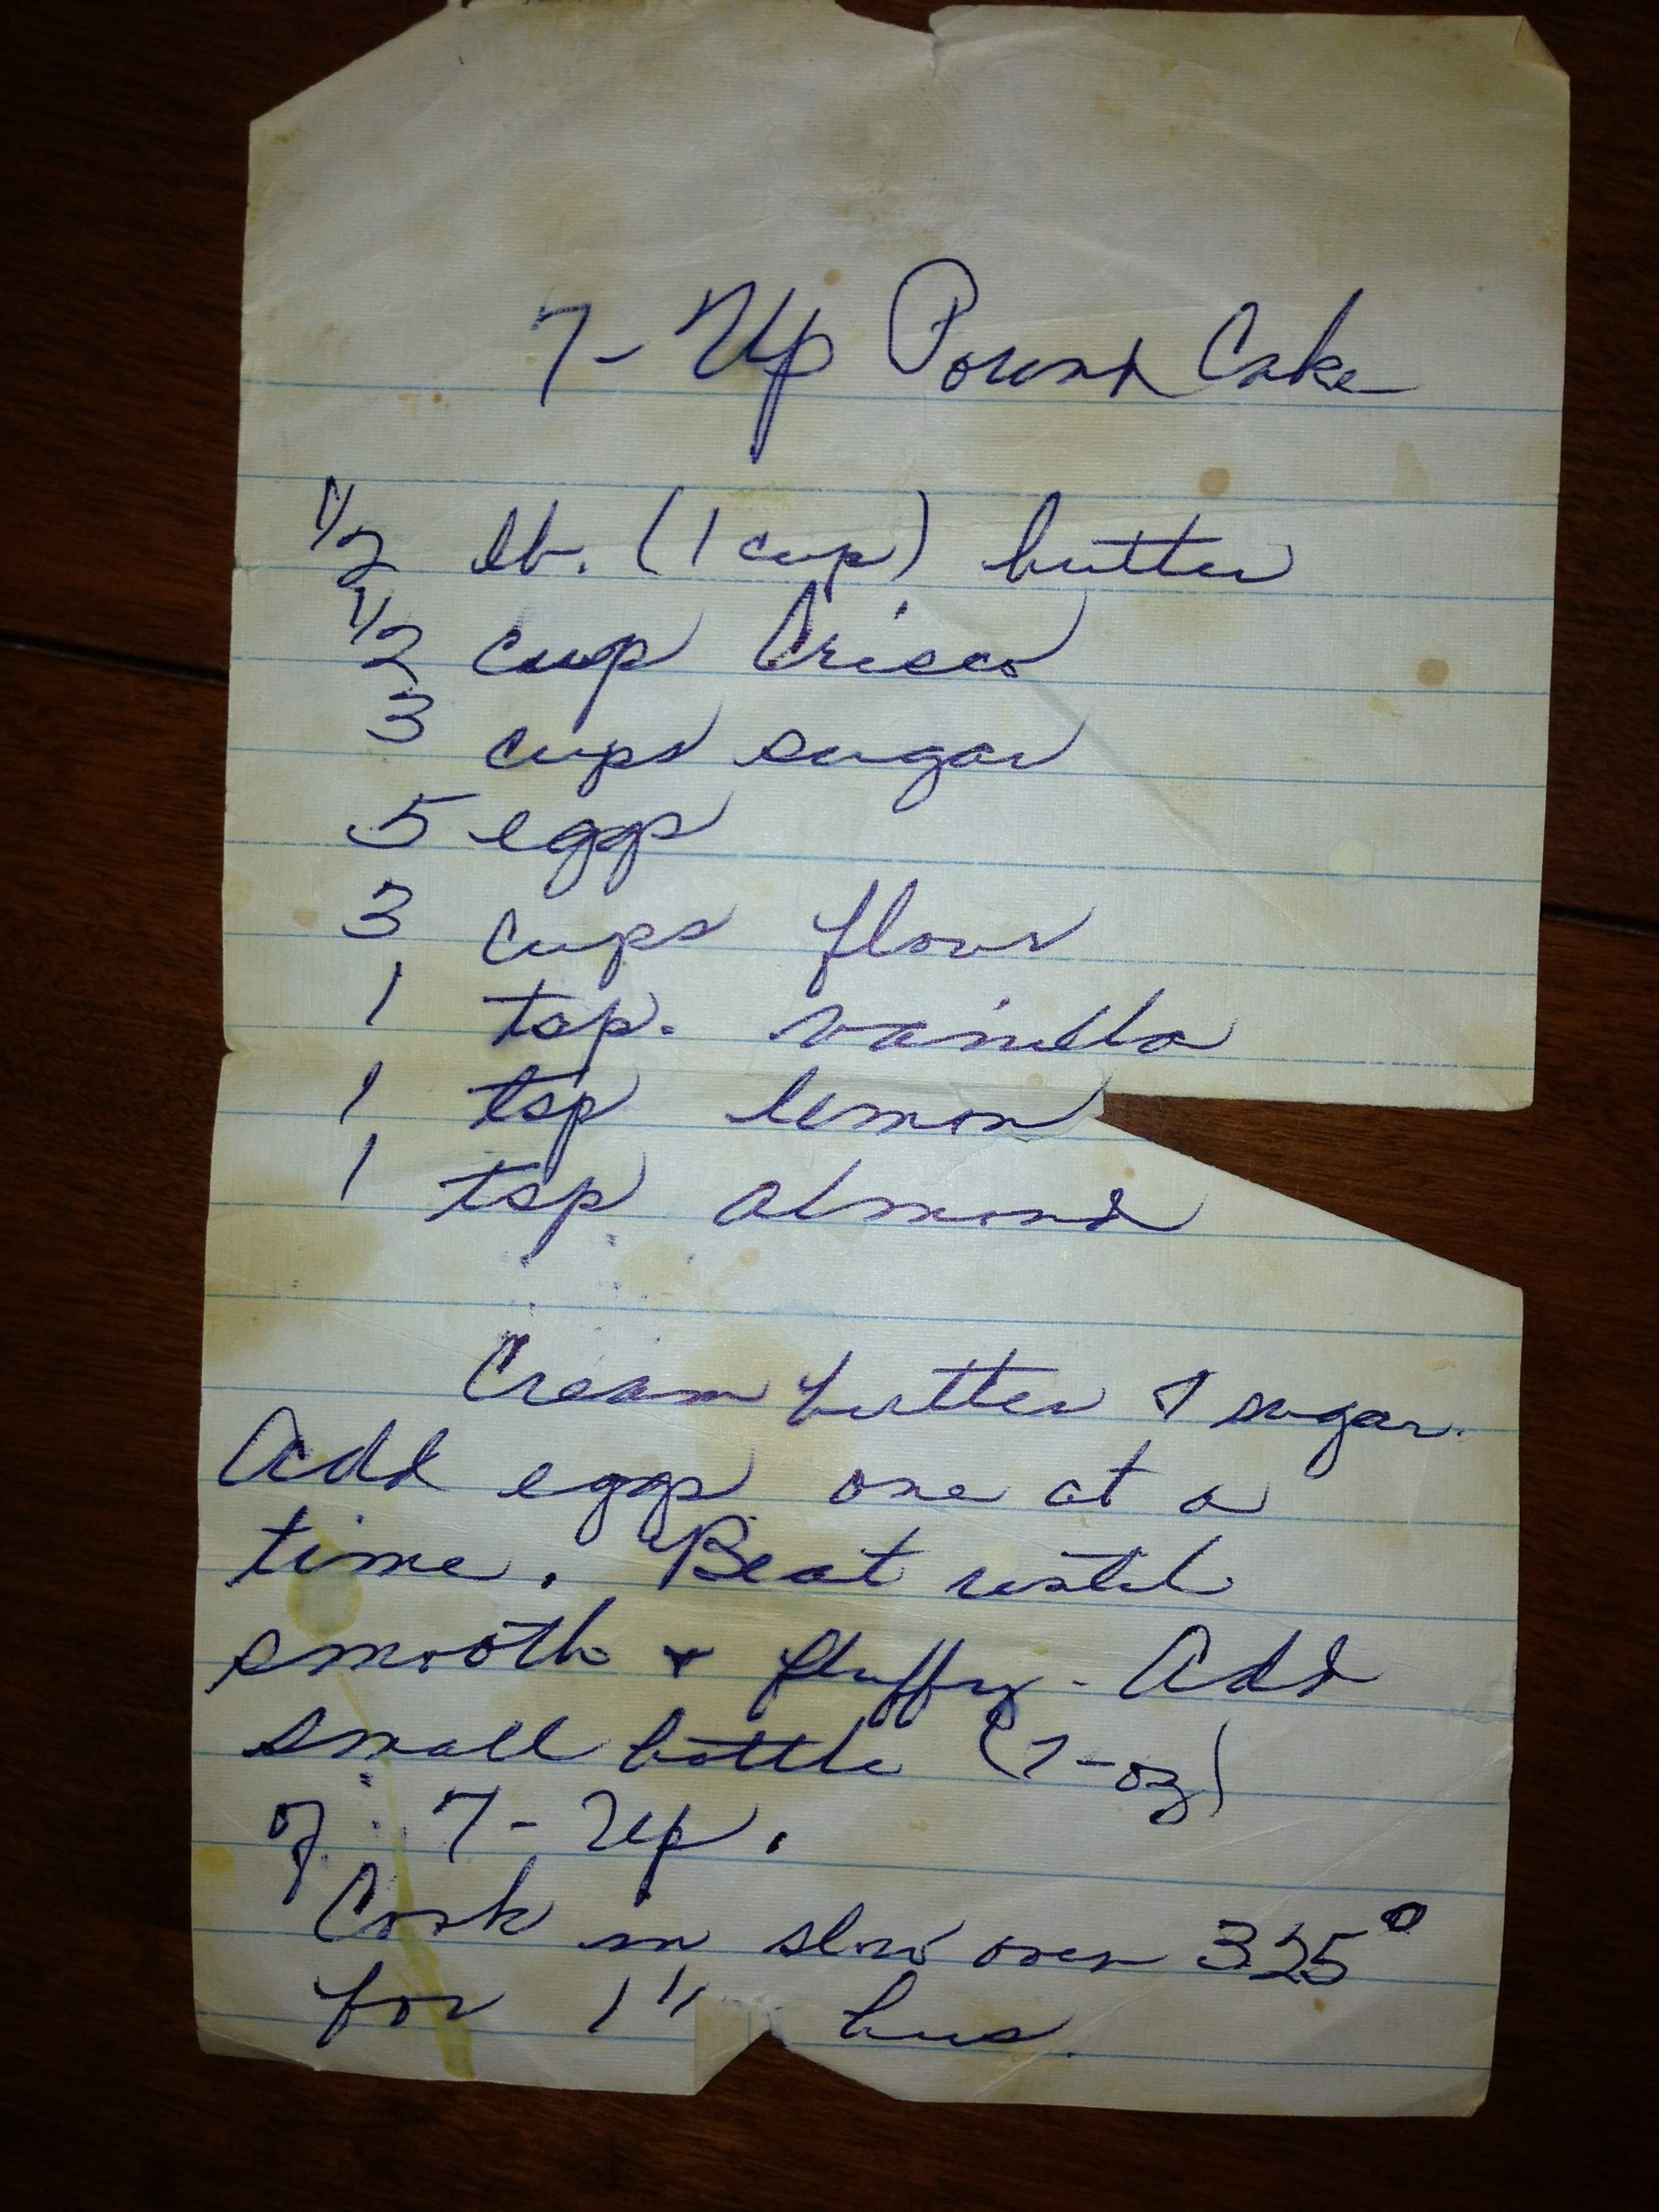 7-Up Pound Cake
1/2 lb. (1 cup) butter
1/2 cup Crisco
3 cups sugar
5 eggs
3 cups flour
1 tsp. vanilla
1 tsp lemon
1 tsp almond
Cream butter & sugar.
Add eggs one at a
time. Beat until
smooth & fluffy. Add
small bottle (7-oz)
of 7-Up.
Cook in slow oven 325°
for 1 hrs.